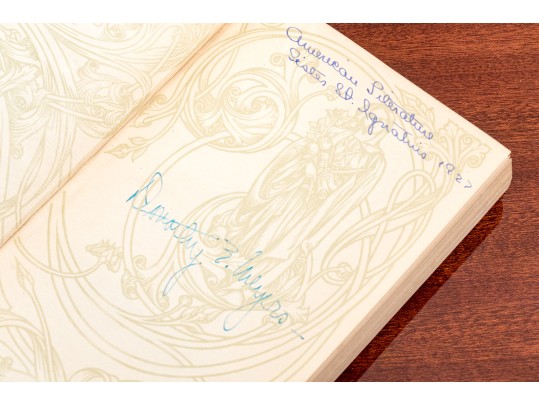 American Literature
Sister St. Ignatius 1927
Dorothy E. Meyers